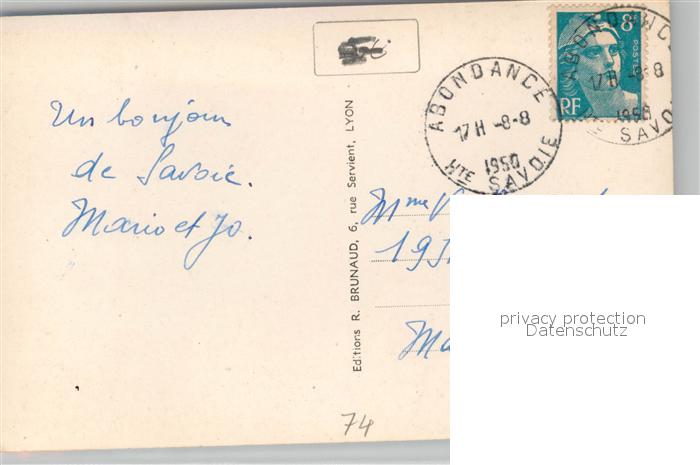 Un bonjour
de Savoie.
Mario et Jo.
Editions R. BRUNAUD, 6, rue Servient, LYON
ABONDANCE
17H -8-8
1950
HTE SAVOIE
8F
POSTES
RF
ABONDANCE
17H -8-8
1950
HTE SAVOIE
Mme
privacy protection
Datenschutz
74